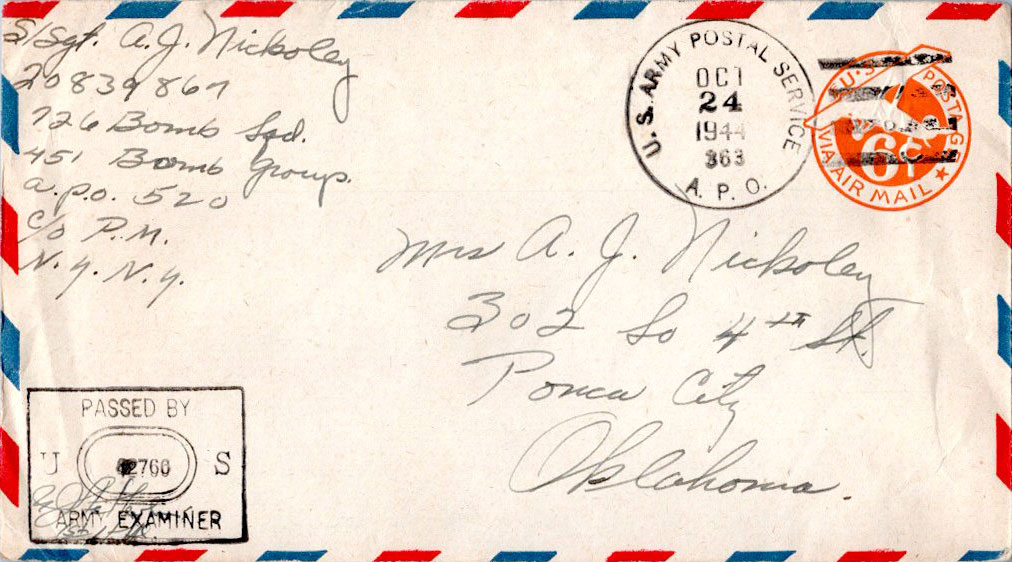 S/Sgt. A.J. Nickoley
20839867
726 Bomb Sqd.
451 Bomb Group.
A.P.O. 520
c/o P.M.
N.Y. N.Y.
U.S. ARMY POSTAL SERVICE
OCT
24
1944
363
A.P.O.
U.S. POSTAGE
6¢
VIA AIR MAIL
Mrs A. J. Nickoley
302 So 4th St.
Ponca City
Oklahoma.
PASSED BY
U S
2760
ARMY EXAMINER